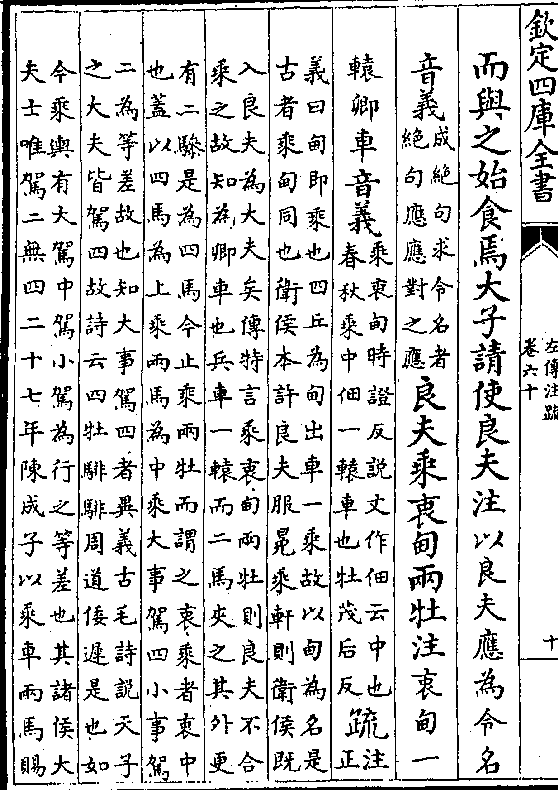 欽定四庫全書
左傳注疏
卷六十
十
而與之始食焉大子請使良夫注以良夫應為令名
音義成絶句求令名者絶句應應對之應良夫乘衷甸兩牡注衷甸一
轅卿車音義乘衷甸時證反説丈作佃云中也春秋乘中佃一轅車也牡茂后反疏注正
義曰甸即乘也四丘為甸出車一乘故以甸為名是
古者乘甸同也衛侯本許良夫服冕乘軒則衛侯既
入良夫為大夫矣傳特言乘衷甸兩牡則良夫不合
乘之故知為卿車也兵車一轅而二馬夾之其外更
有二驂是為四馬今止乘兩牡而謂之衷乘者衷中
也蓋以四馬為上乘兩馬為中乘大事駕四小事駕
二為等差故也知大事駕四者異義古毛詩説天子
之大夫皆駕四故詩云四牡騑騑周道倭遲是也如
今乘輿有大駕中駕小駕為行之等差也其諸侯大
夫士唯駕二無四二十七年陳成子以乘車兩馬賜